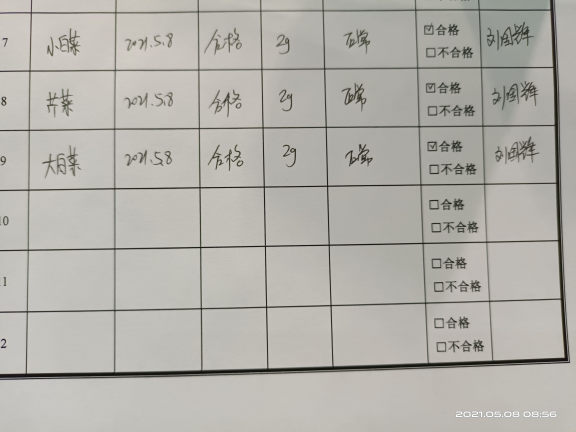 7 小白菜 2021.5.8 合格 2g 正常 ☑合格 刘国辉
□不合格
8 芹菜 2021.5.8 合格 2g 正常 ☑合格 刘国辉
□不合格
9 大白菜 2021.5.8 合格 2g 正常 ☑合格 刘国辉
□不合格
10 □合格
□不合格
1 □合格
□不合格
2 □合格
□不合格
2021.05.08 08:56